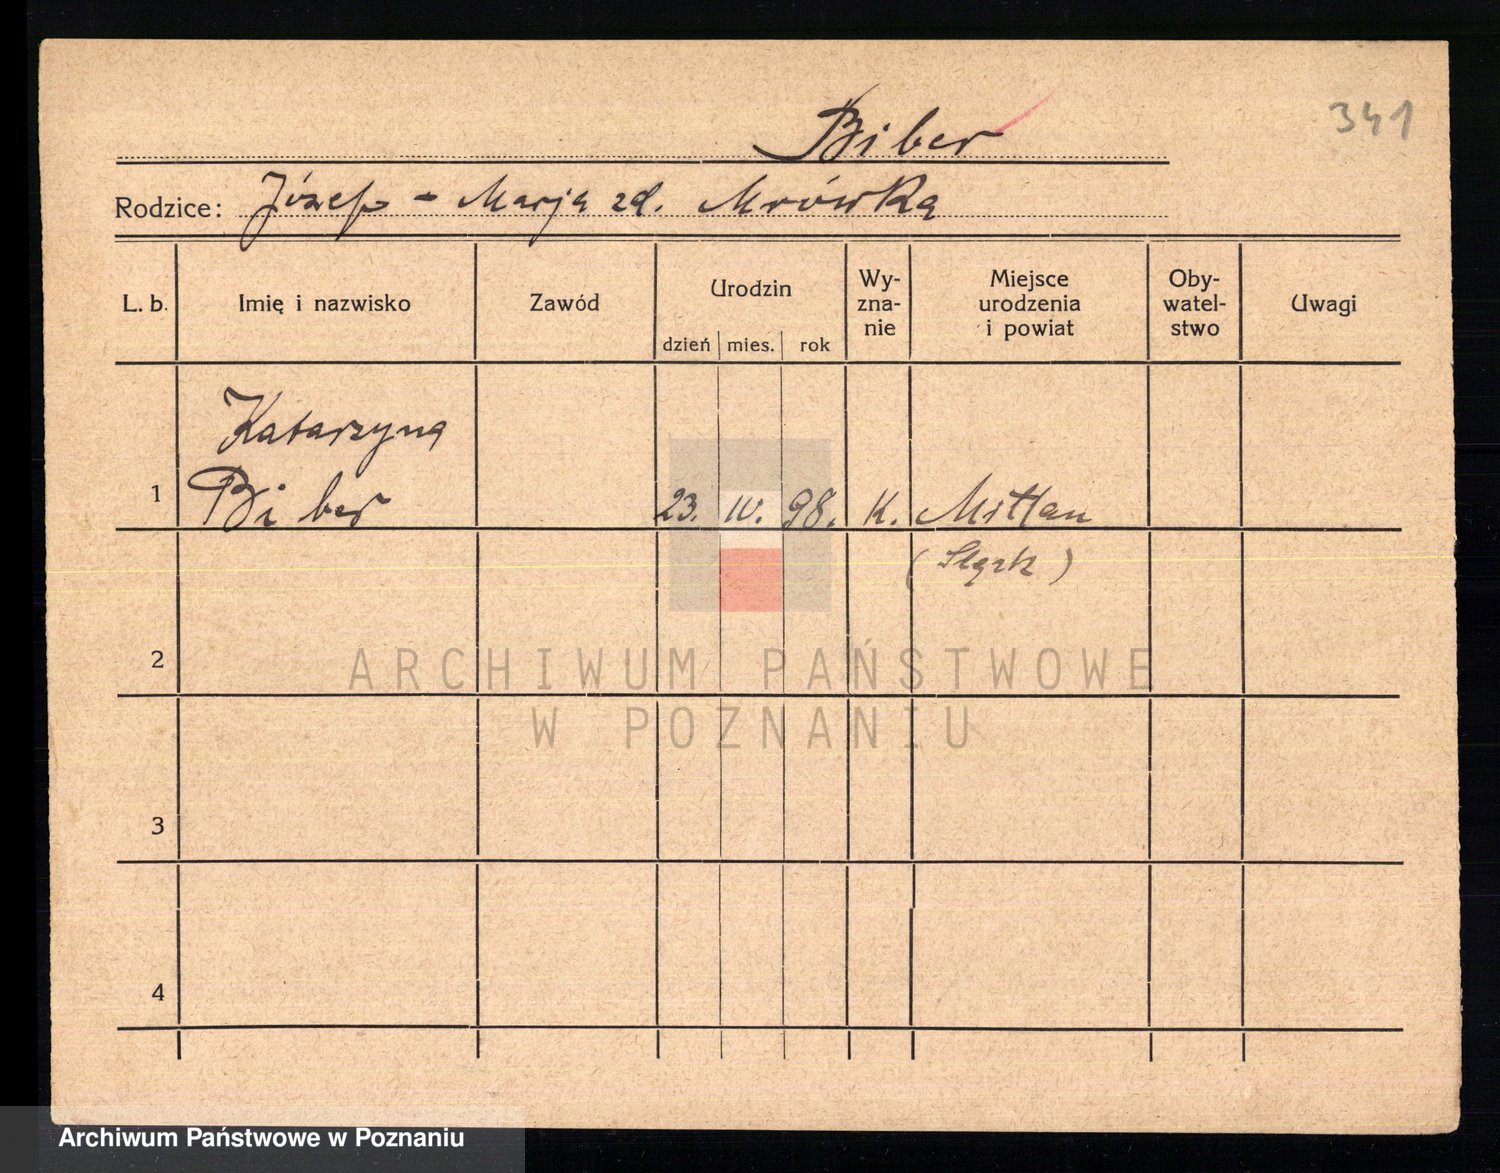 Biber
341
Rodzice: Józef - Marja zd. Mrówka
L. b.
Imię i nazwisko
Zawód
Urodzin
dzień
mies.
rok
Wy-
zna-
nie
Miejsce
urodzenia
i powiat
Oby-
watel-
stwo
Uwagi
Katarzyna
1
Biber
23. IV. 98.
K.
(Śląsk)
2
3
4
ARCHIWUM PAŃSTWOWE
W POZNANIU
Archiwum Państwowe w Poznaniu